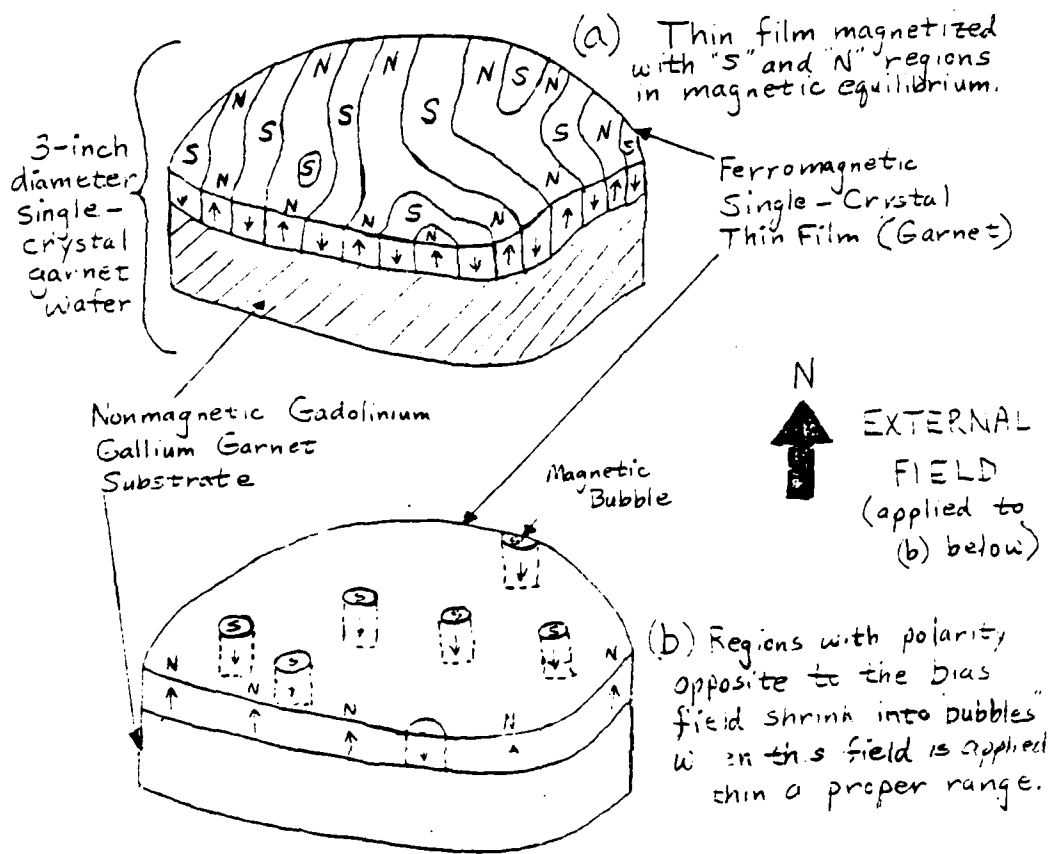 (a) Thin film magnetized
with "S" and "N" regions
in magnetic equilibrium.
3-inch
diameter
single-
crystal
garnet
wafer
N
N
N
N
S
N
S
S
S
S
N
S
S
N
S
N
N
N
S
N
N
N
Ferromagnetic
Single-Crystal
Thin Film (Garnet)
Nonmagnetic Gadolinium
Gallium Garnet
Substrate
Magnetic
Bubble
N
EXTERNAL
FIELD
(applied to
(b) below)
S
S
S
S
S
N
N
N
N
N
(b) Regions with polarity
opposite to the bias
field shrink into "bubbles"
this field is applied
a proper range.